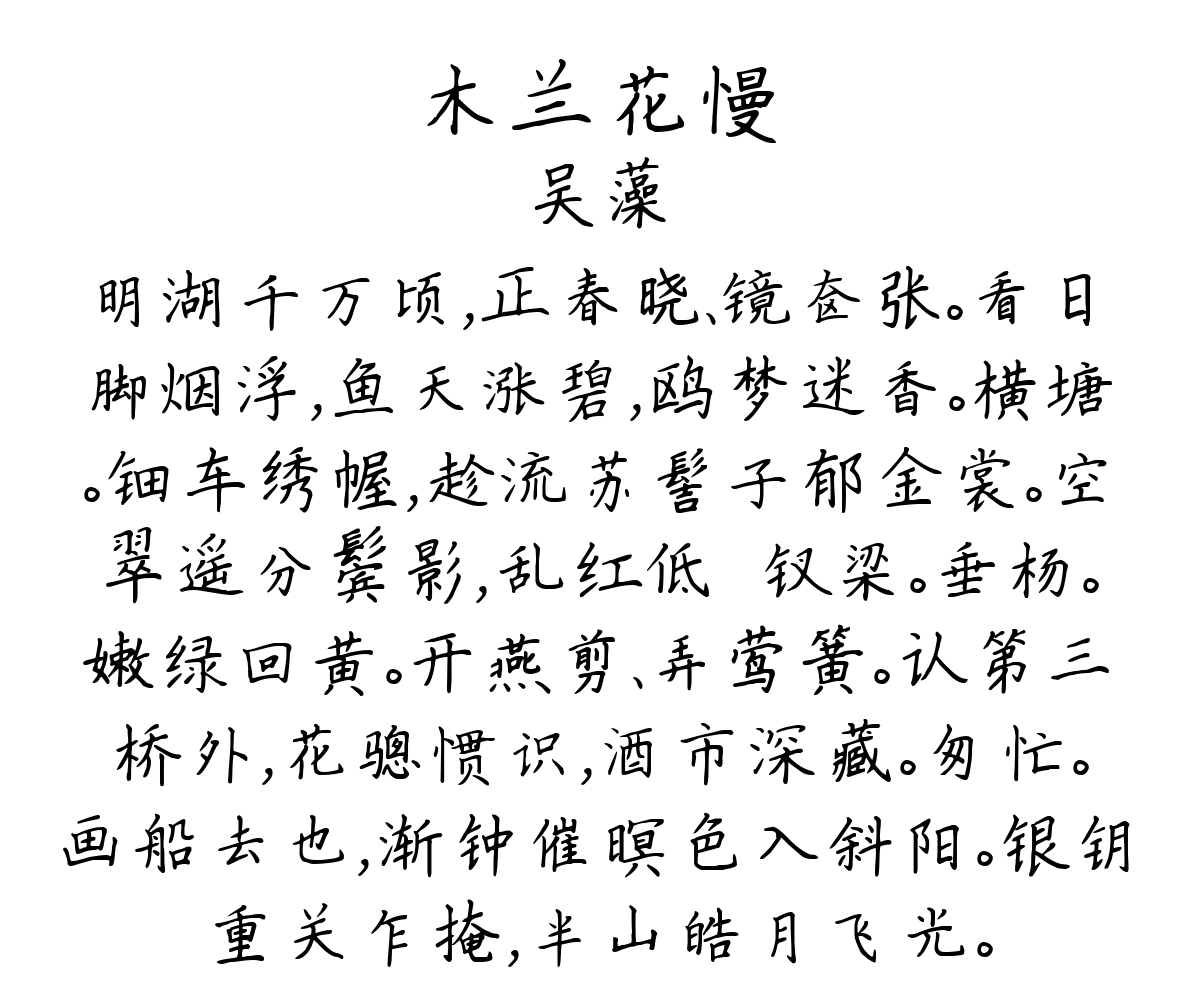 木兰花慢
吴藻
明湖千万顷,正春晓、镜奁张。看日
脚烟浮,鱼天涨碧,鸥梦迷香。横塘
。钿车绣幄,趁流苏髻子郁金裳。空
翠遥分鬓影,乱红低 钗梁。垂杨。
嫩绿回黄。开燕剪、弄莺簧。认第三
桥外,花骢惯识,酒市深藏。匆忙。
画船去也,渐钟催暝色入斜阳。银钥
重关乍掩,半山皓月飞光。